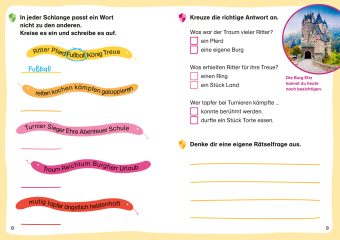 In jeder Schlange passt ein Wort
nicht zu den anderen.
Kreise es ein und schreibe es auf.
Ritter Pferd Fußball König Treue
Fußball
reiten kochen kämpfen galoppieren
Turnier Sieger Ehre Abenteuer Schule
Traum Reichtum Burgherr Urlaub
mutig tapfer ängstlich heldenhaft
8
Kreuze die richtige Antwort an.
Was war der Traum vieler Ritter?
ein Pferd
eine eigene Burg
Was erhielten Ritter für ihre Treue?
einen Ring
ein Stück Land
Wer tapfer bei Turnieren kämpfte ...
konnte berühmt werden.
durfte ein Stück Torte essen.
Die Burg Eltz
kannst du heute
noch besichtigen.
Denke dir eine eigene Rätselfrage aus.
9